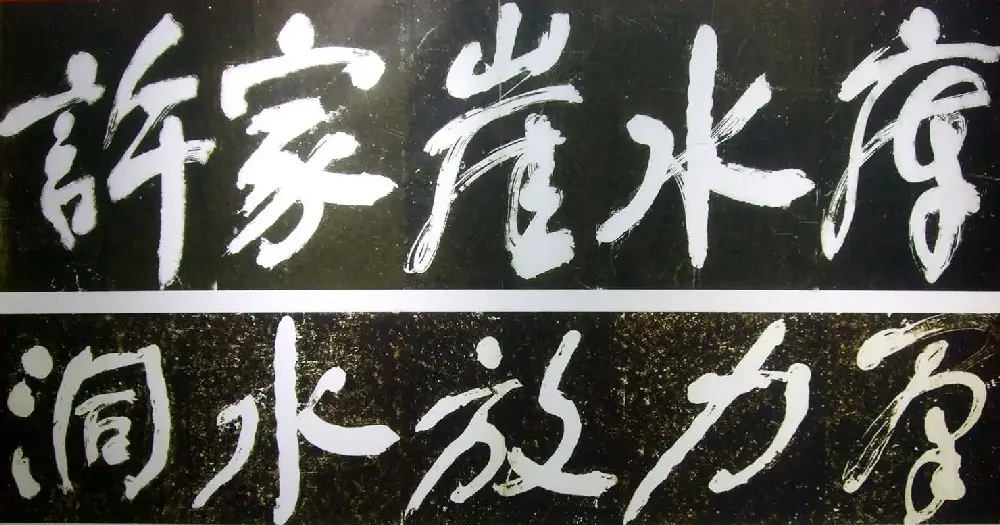 許家崖水庫
電力放水洞